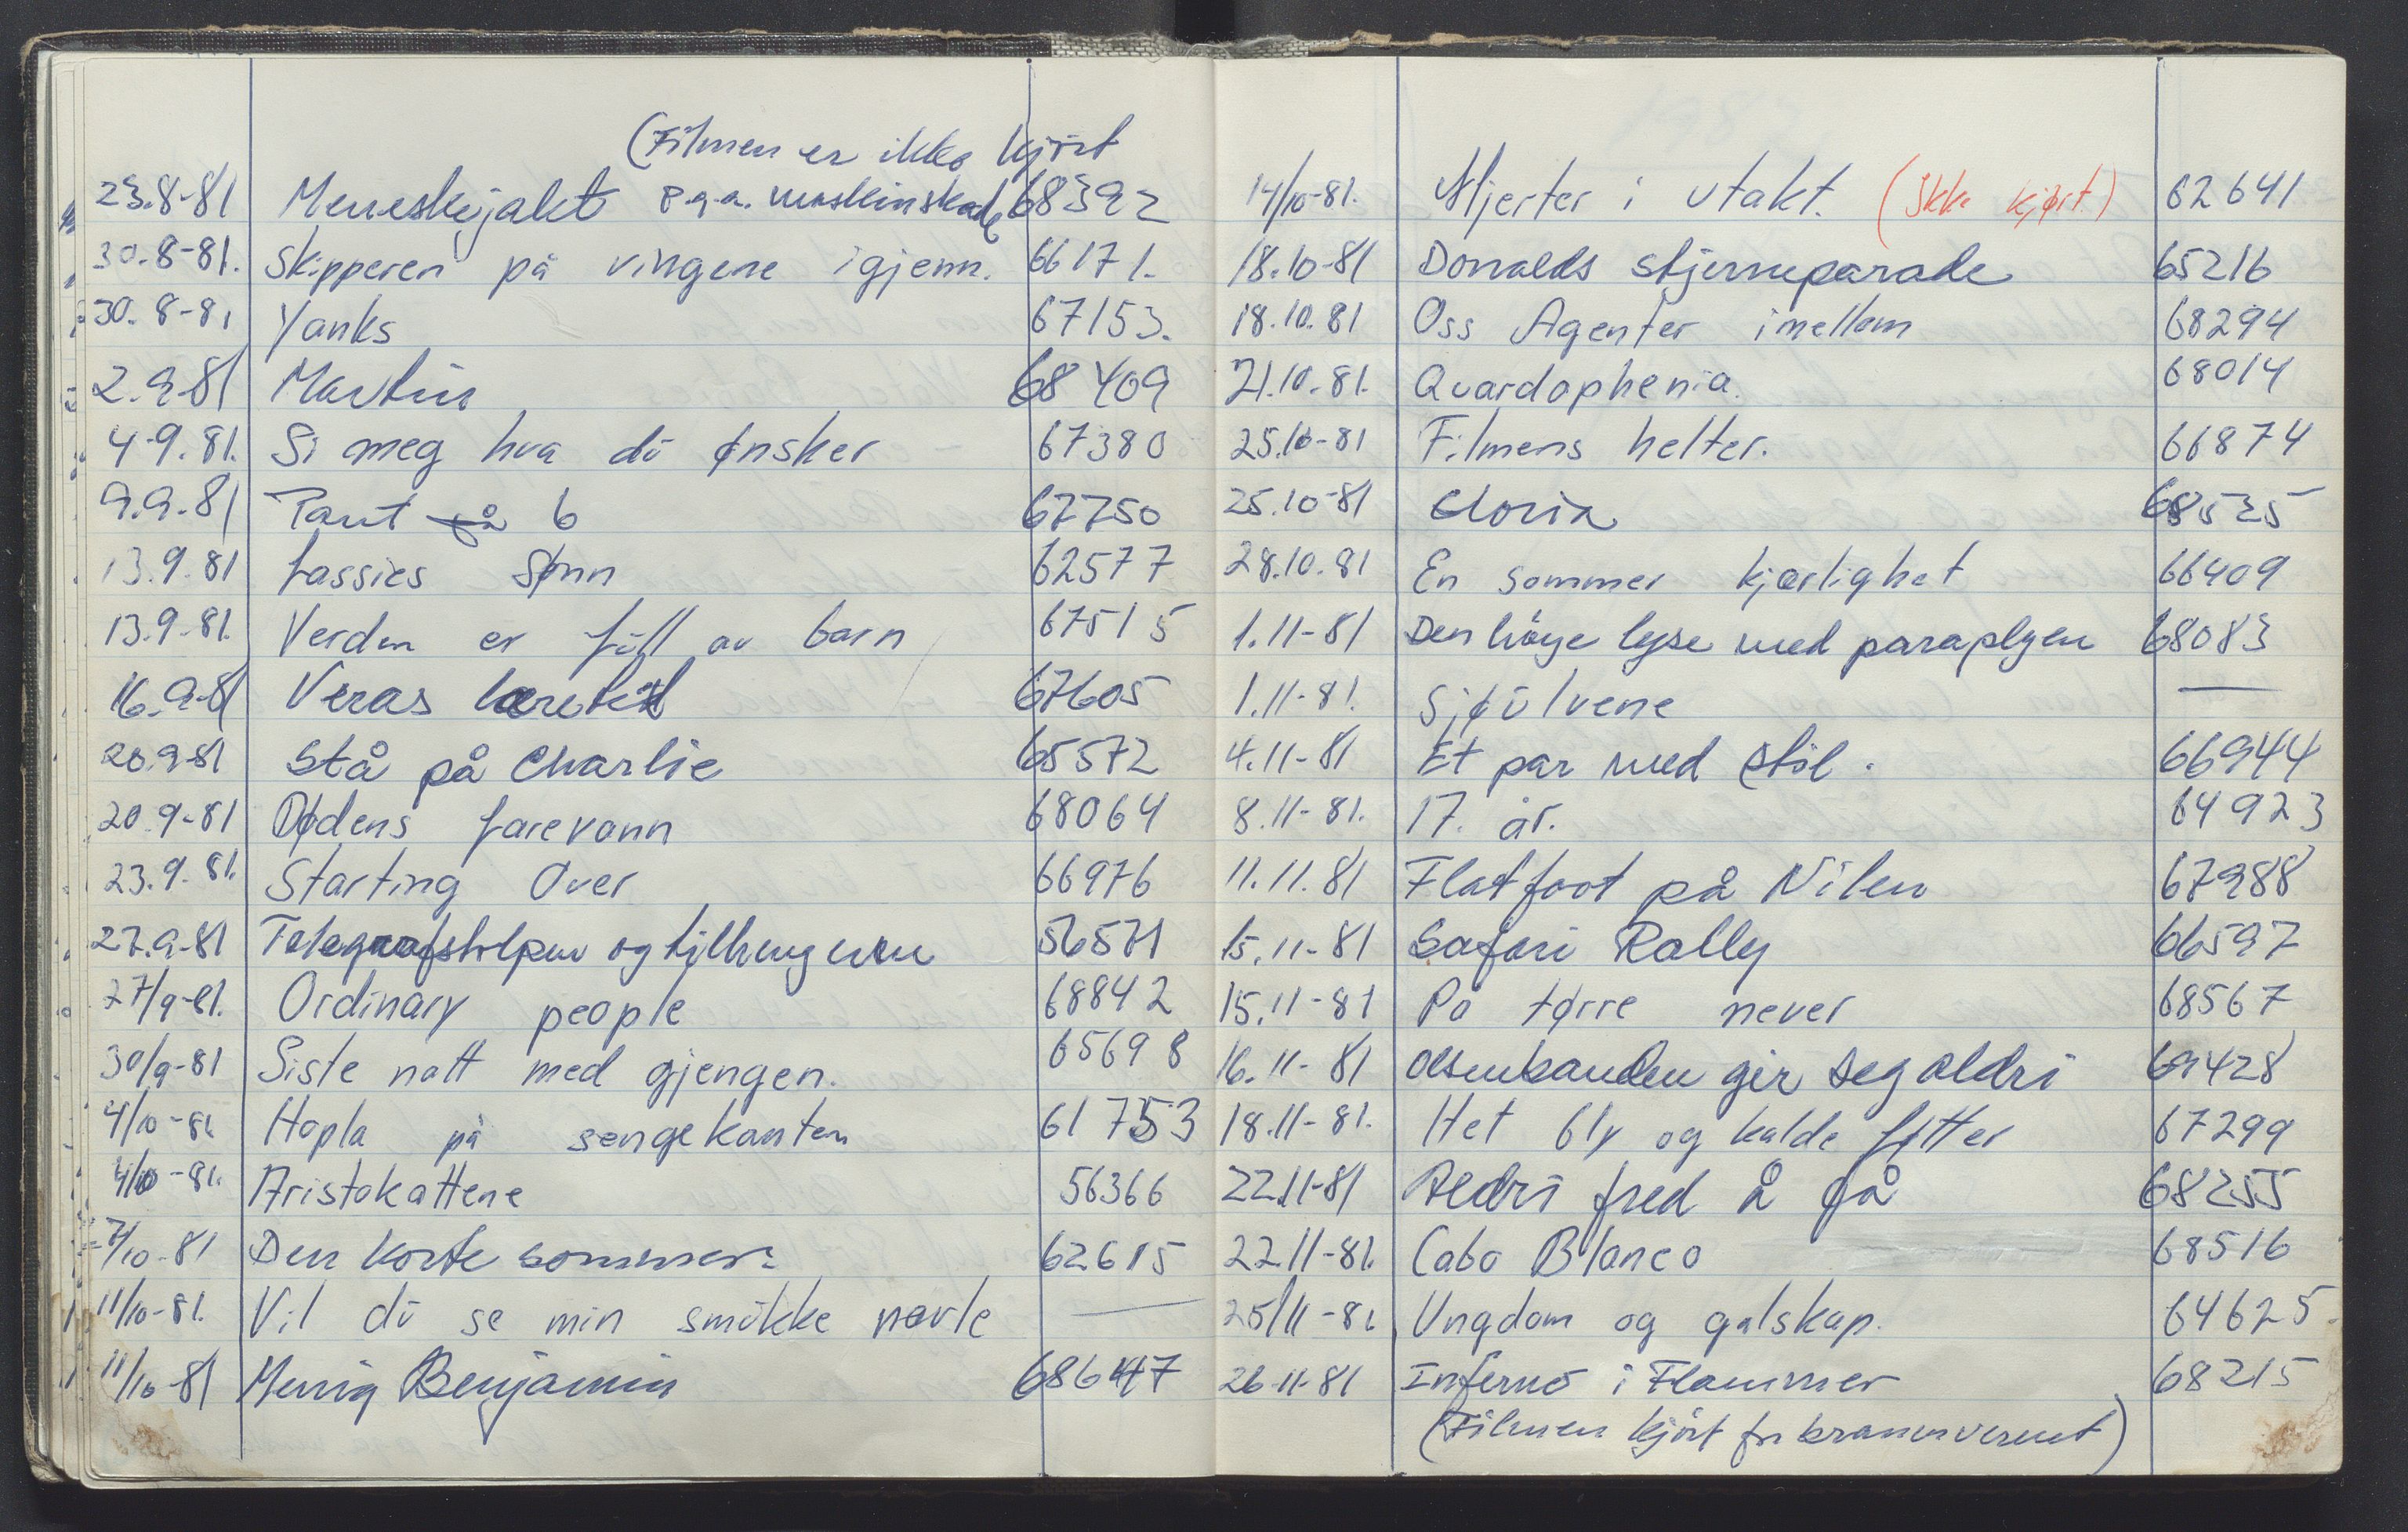 (Filmen er ikke kjørt
23.8-81 Meneskejakt P.g.a. maskinskade 68392
30.8-81. Skipperen på vingene igjenn. 66171.
30.8-81 Yanks 67153.
2.9-81 Martin 68409
4-9.81. Si meg hva du ønsker 67380
9.9.81 Pant på 6 67750
13.9.81 Lassies Sønn 62577
13.9-81. Verden er full av barn 67515
16.9-81 Veras læretid 67605
20.9-81 Stå på Charlie 65572
20.9-81 Dødens farevann 68064
23.9.81. Starting Over 66976
27.9-81 Telegrafstolpen og tilhengeren 56571
27/9-81. Ordinary people 68842
30/9-81 Siste natt med gjengen. 65698
4/10-81. Hopla på sengekanten 61753
4/10-81. Aristokattene 56366
7/10-81 Den korte sommer 62615
11/10-81. Vil du se min smukke navle —
11/10-81 Menig Benjamin 68647
14/10-81. Hjerter i utakt. (Ikke kjørt) 62641
18.10-81 Donalds stjerneparade 65216
18.10.81 Oss Agenter imellom 68294
21.10.81. Quardophenia. 68014
25.10-81 Filmens helter. 66874
25.10-81 Gloria 68535
28.10.81 En sommer kjærlighet 66409
1.11-81 Den høye lyse med paraplyen 68083
1.11-81. Sjøulvene —
4.11-81 Et par med stil. 66944
8.11-81. 17. år. 64923
11.11.81 Flatfoot på Nilen 67988
15.11-81 Safari Rally 66597
15.11-81 På tørre never 68567
16.11-81 Olsenbanden gir seg aldri 69428
18.11-81. Het bly og kalde føtter 67299
22.11-81 Aldri fred å få 68255
22.11-81. Cabo Blanco 68516
25/11-81 Ungdom og galskap. 64625.
26-11-81 Inferno i Flammer 68215
(Filmen kjørt for brannvernet)